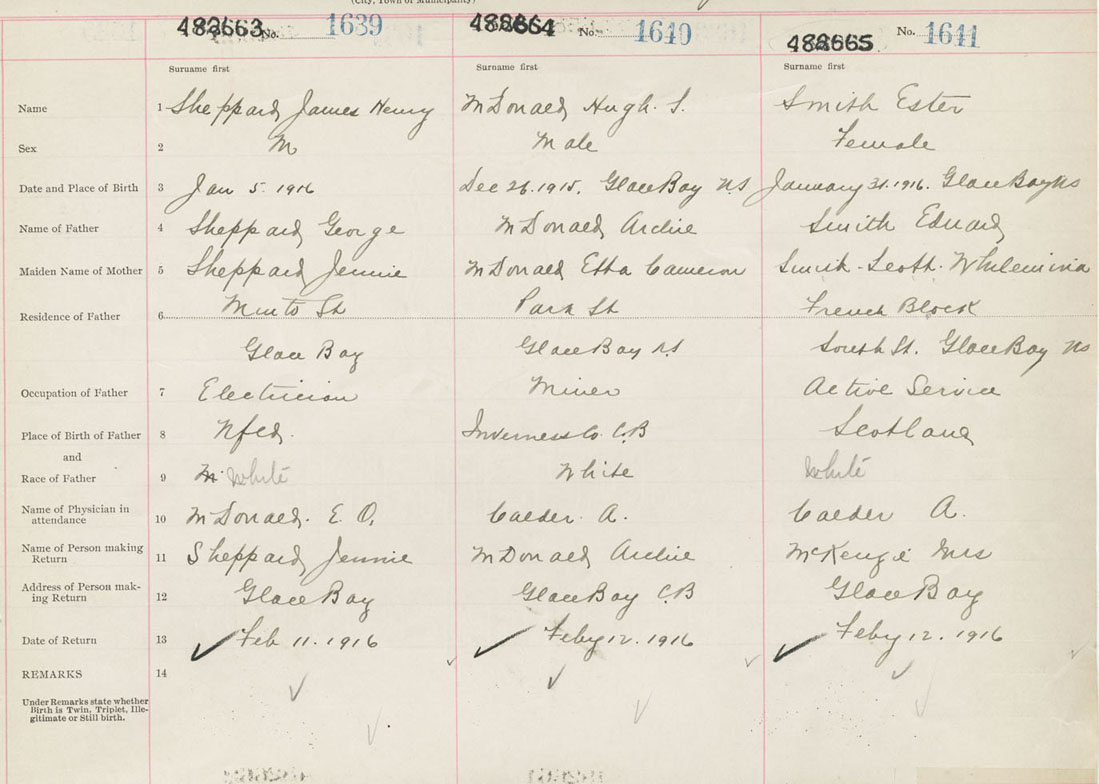 (City, Town or Municipality)
482663 No. 1639 482664 No. 1640 482665 No. 1641
Surname first Surname first Surname first
Name 1 Sheppard James Henry McDonald Hugh. S. Smith Ester
Sex 2 M Male Female
Date and Place of Birth 3 Jan 5. 1916 Dec 26. 1915. Glace Bay NS January 31. 1916. Glace Bay NS
Name of Father 4 Sheppard George McDonald Archie Smith Edward
Maiden Name of Mother 5 Sheppard Jennie McDonald Etta Cameron Smith - Scott. Whilemina
Residence of Father 6 Minto St Park St French Block
Glace Bay Glace Bay NS South St. Glace Bay NS
Occupation of Father 7 Electrician Miner Active Service
Place of Birth of Father 8 Nfld. Inverness Co. C.B Scotland
and
Race of Father 9 White White White
Name of Physician in
attendance 10 McDonald. E. O. Calder. A. Calder A.
Name of Person making
Return 11 Sheppard Jennie McDonald Archie McKenzie Mrs
Address of Person mak-
ing Return 12 Glace Bay Glace Bay C.B Glace Bay
Date of Return 13 Feb 11. 1916 Feby 12. 1916 Feby 12. 1916
REMARKS 14
Under Remarks state whether
Birth is Twin, Triplet, Ille-
gitimate or Still birth.